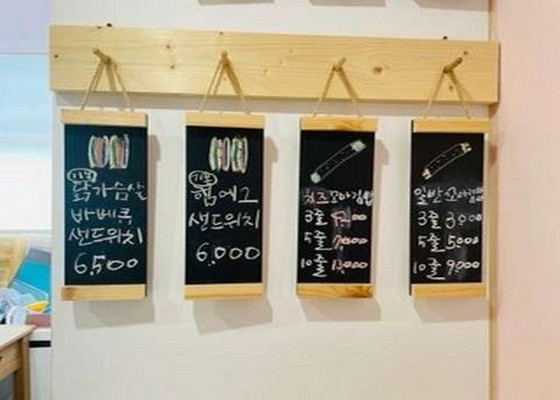 닭가슴살
바베큐
샌드위치
6,500
햄에그
샌드위치
6,000
치즈꼬마김밥
3줄
5줄
10줄 13,000
일반꼬마김밥
3줄 3000
5줄 5000
10줄 9000